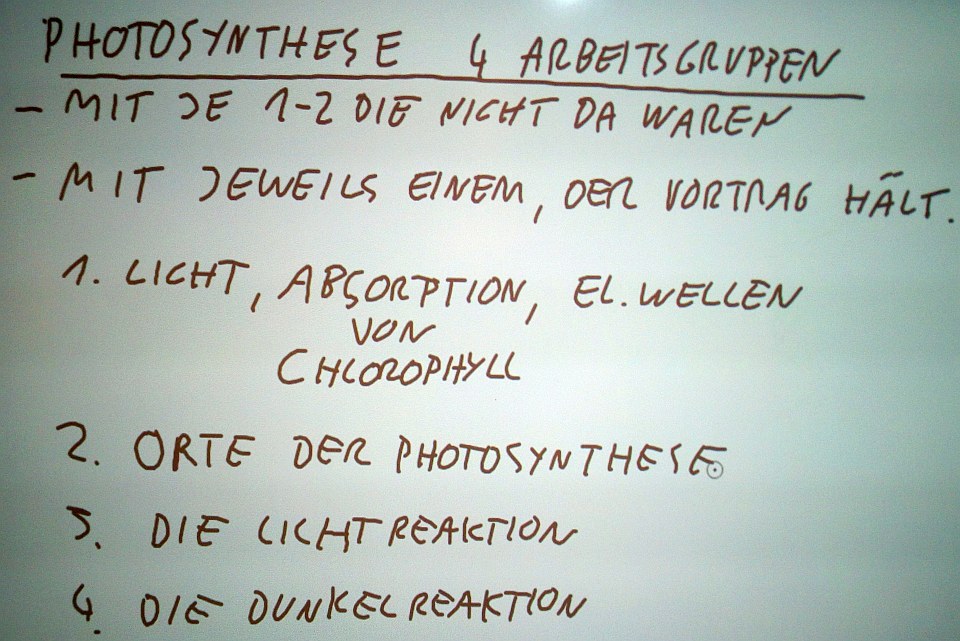 PHOTOSYNTHESE 4 ARBEITSGRUPPEN
- MIT JE 1-2 DIE NICHT DA WAREN
- MIT JEWEILS EINEM, DER VORTRAG HÄLT.
1. LICHT, ABSORPTION, EL. WELLEN
VON
CHLOROPHYLL
2. ORTE DER PHOTOSYNTHESE
3. DIE LICHTREAKTION
4. DIE DUNKELREAKTION